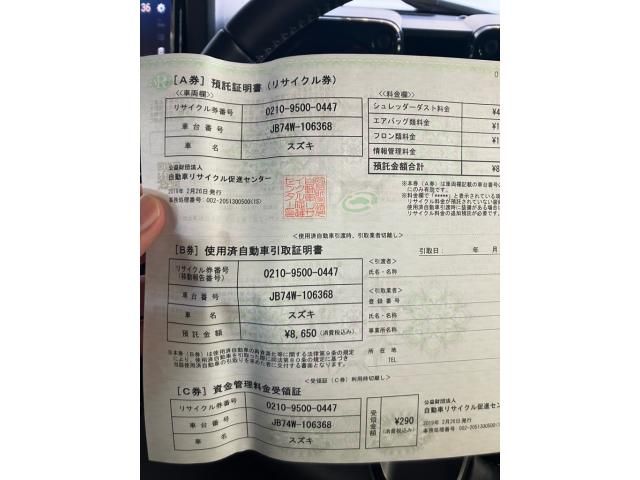 36
[A券] 預託証明書 (リサイクル券)
<<車両欄>>
リサイクル券番号 0210-9500-0447
車台番号 JB74W-106368
車名 スズキ
<<料金欄>>
シュレッダーダスト料金 ¥4
エアバッグ類料金 ¥1
フロン類料金 ¥1
情報管理料金
預託金額合計 ¥8
公益財団法人
自動車リサイクル促進センター
2019年 2月26日発行
事務処理番号:002-2051300500(IS)
<使用済自動車引渡時、引取業者切離し>
[B券] 使用済自動車引取証明書
引取日: 年 月
リサイクル券番号
(移動報告番号) 0210-9500-0447
車台番号 JB74W-106368
車名 スズキ
預託金額 ¥8,650 (消費税込み)
<引渡者>
氏名・名称
<引取業者>
登録番号
氏名・名称
事業所名
所在地
TEL
※本券(B券)は使用済自動車の再資源化等に関する法律第9条の規定
により、使用済自動車を引取った際に同法第80条の規定に基づき
当該使用済自動車の引取りを求めた者に交付する書面となります。
<受領証(C券)利用時切離し>
[C券] 資金管理料金受領証
リサイクル券番号 0210-9500-0447
車台番号 JB74W-106368
車名 スズキ
受領金額 ¥290
(消費税込み)
公益財団法人
自動車リサイクル促進セン
2019年 2月26日発行
事務処理番号:002-2051300500(IS)